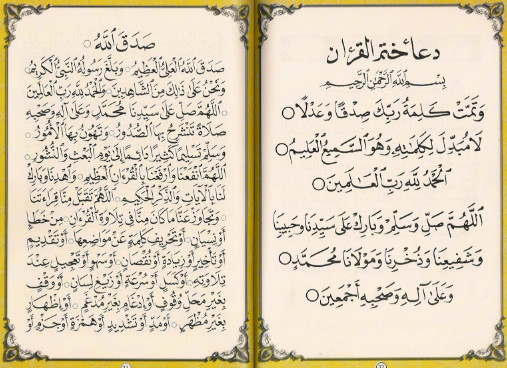 دعاء ختم القرءان
بِسْمِ اللَّهِ الرَّحْمَٰنِ الرَّحِيمِ
وَتَمَّتْ كَلِمَةُ رَبِّكَ صِدْقًا وَعَدْلًا
لَا مُبَدِّلَ لِكَلِمَاتِهِ وَهُوَ السَّمِيعُ الْعَلِيمُ
الْحَمْدُ لِلَّهِ رَبِّ الْعَالَمِينَ
اللَّهُمَّ صَلِّ وَسَلِّمْ وَبَارِكْ عَلَى سَيِّدِنَا وَحَبِيبِنَا
وَشَفِيعِنَا وَذُخْرِنَا وَمَوْلَانَا مُحَمَّدٍ
وَعَلَىٰ آلِهِ وَصَحْبِهِ أَجْمَعِينَ
صَدَقَ اللَّهُ
صَدَقَ اللَّهُ الْعَلِيُّ الْعَظِيمُ وَبَلَّغَ رَسُولُهُ النَّبِيُّ الْكَرِيمُ
وَنَحْنُ عَلَى ذَلِكَ مِنَ الشَّاهِدِينَ وَالْحَمْدُ لِلَّهِ رَبِّ الْعَالَمِينَ
اللَّهُمَّ صَلِّ عَلَى سَيِّدِنَا مُحَمَّدٍ وَعَلَى آلِهِ وَصَحْبِهِ
صَلَاةً تَنْشَرِحُ بِهَا الصُّدُورُ وَتَهُونُ بِهَا الْأُمُورُ
وَسَلِّمْ تَسْلِيمًا كَثِيرًا دَائِمًا إِلَى يَوْمِ الْبَعْثِ وَالنُّشُورِ
اللَّهُمَّ انْفَعْنَا وَارْفَعْنَا بِالْقُرْءَانِ الْعَظِيمِ وَاهْدِنَا وَبَارِكْ
لَنَا بِالْآيَاتِ وَالذِّكْرِ الْحَكِيمِ اللَّهُمَّ تَقَبَّلْ مِنَّا قِرَاءَتَنَا
وَتَجَاوَزْ عَنَّا مَا كَانَ مِنَّا فِي تِلَاوَةِ الْقُرْءَانِ مِنْ خَطَإٍ
أَوْ نِسْيَانٍ أَوْ تَحْرِيفِ كَلِمَةٍ عَنْ مَوَاضِعِهَا أَوْ تَقْدِيمٍ
أَوْ تَأْخِيرٍ أَوْ زِيَادَةٍ أَوْ نُقْصَانٍ أَوْ سَهْوٍ أَوْ تَعْجِيلٍ عِنْدَ
تِلَاوَتِهِ أَوْ كَسَلٍ أَوْ سُرْعَةٍ أَوْ زَيْغِ لِسَانٍ أَوْ وَقْفٍ
بِغَيْرِ مَحَلِّ وُقُوفٍ أَوْ إِدْغَامٍ بِغَيْرِ مُدْغَمٍ أَوْ إِظْهَارٍ
بِغَيْرِ مُظْهَرٍ أَوْ مَدٍّ أَوْ تَشْدِيدٍ أَوْ هَمْزَةٍ أَوْ جَزْمٍ أَوْ